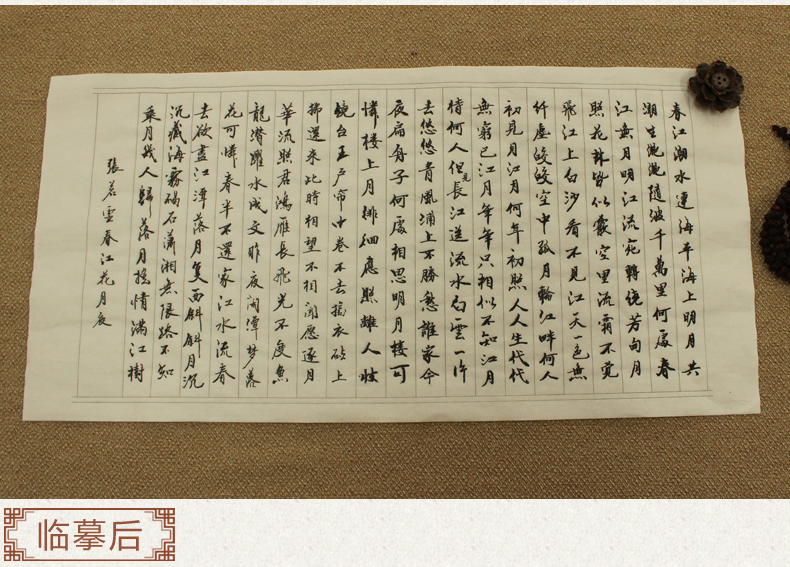 春江潮水連海平海上明月共
潮生灩灩隨波千萬里何處春
江無月明江流宛轉繞芳甸月
照花林皆似霰空里流霜不覺
飛汀上白沙看不見江天一色無
纖塵皎皎空中孤月輪江畔何人
初見月江月何年初照人人生代代
無窮已江月年年只相似不知江月
待何人但見長江送流水白雲一片
去悠悠青風浦上不勝愁誰家今
夜扁舟子何處相思明月樓可
憐樓上月徘徊應照離人妝
鏡台玉戶帘中卷不去搗衣砧上
拂還來此時相望不相聞願逐月
華流照君鴻雁長飛光不度魚
龍潛躍水成文昨夜閑潭夢落
花可憐春半不還家江水流春
去欲盡江潭落月复西斜斜月沉
沉藏海霧碣石瀟湘無限路不知
乘月幾人歸落月搖情滿江樹
張若虛春江花月夜
临摹后